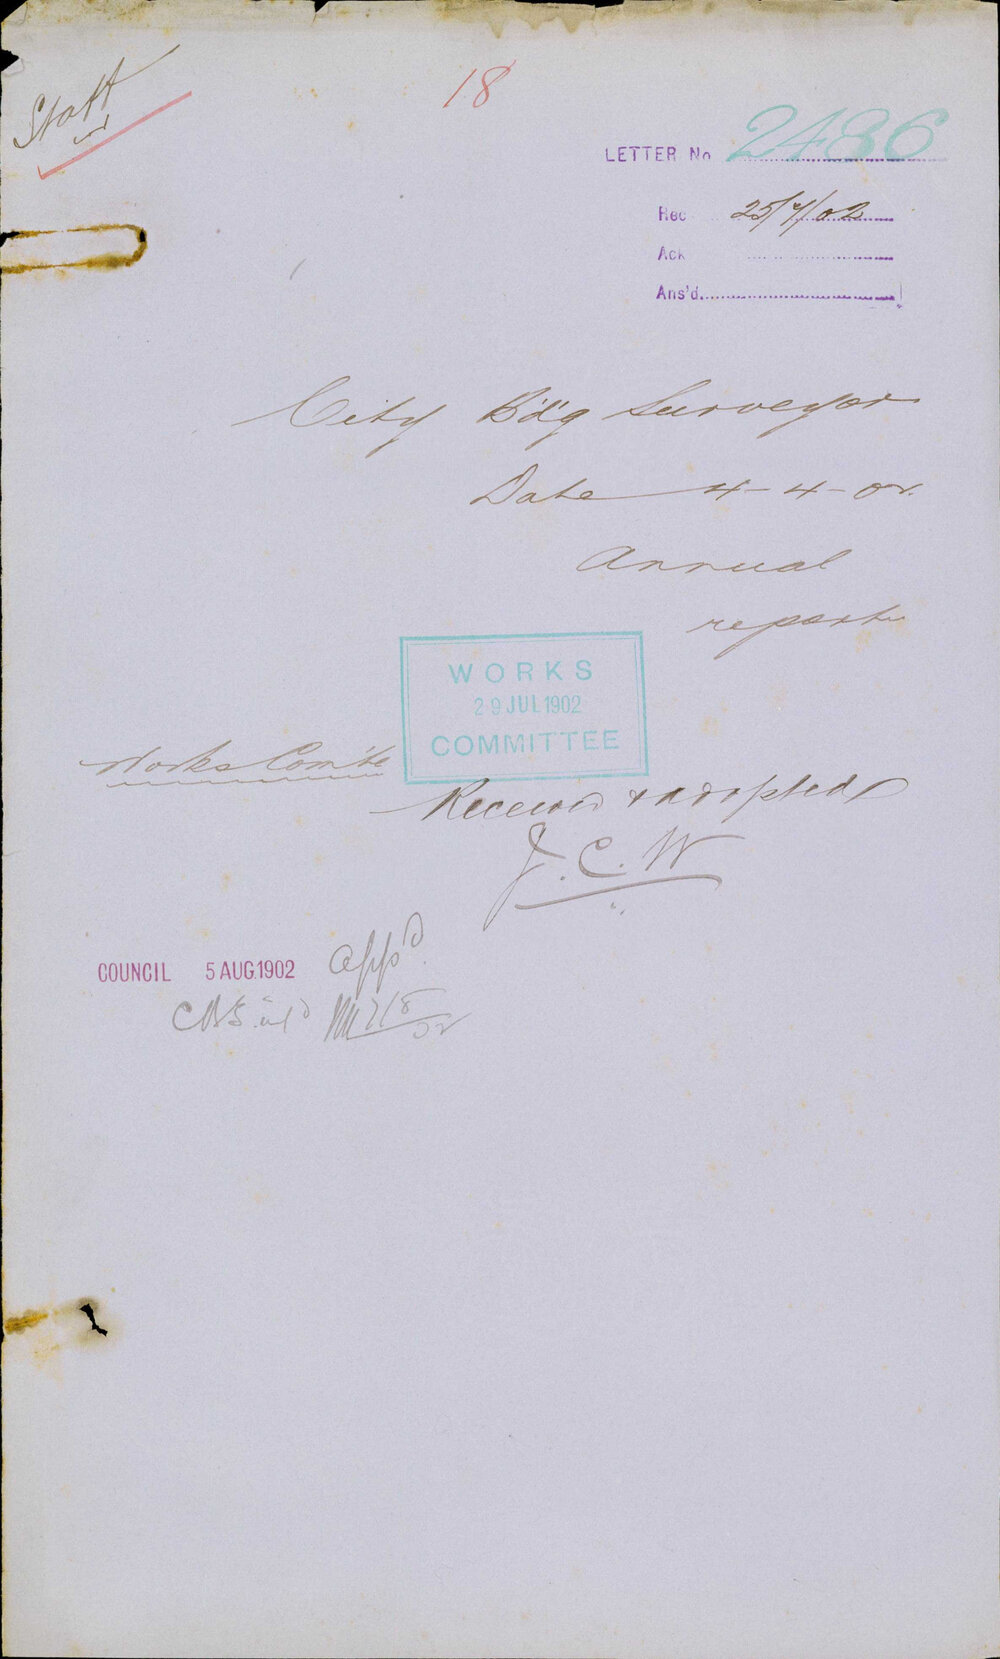 Staff
18
LETTER No 2486
Rec 25/7/02
Ack
Ans'd.
City B'd'g Surveyor
Date 4-4-02.
Annual
report
WORKS
29 JUL 1902
COMMITTEE
Works Com'tee
Received & adopted
J.C.W
COUNCIL 5 AUG.1902 App'd